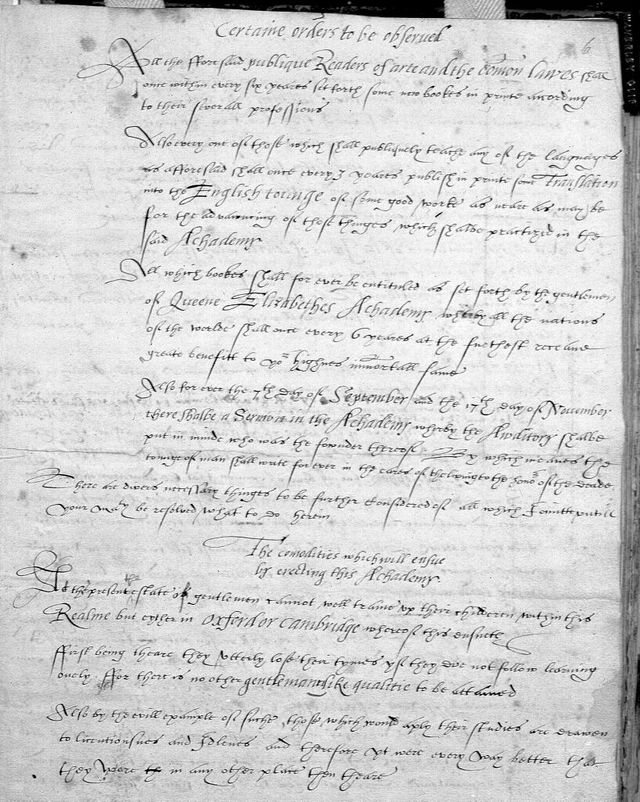 Certaine orders to be observed
6
All the fforesaid publique Readers of arte and the Comon lawes shall
once within every six yeares set forth some new bookes in printe according
to their severall professions
Also every one of those which shall publiquely teache any of the languages
as afforesaid shall once every 3 yeares publish in printe some Translation
into the English tounge of some good worke as neare as may be
for the advauncing of those thinges which shalbe practized in the
said Achademy
All which bookes shall for ever be entituled as set forth by the gentlemen
of Queene Elizabethes Achademy wherby all the nations
of the worlde shall once every 6 yeares at the furthest receave
greate benefitt to yor highnes immortall fame
Also for ever the 7th day of September and the 17th day of November
there shalbe a Sermon in the Achademy wherby the Auditory shalbe
put in minde who was the fownder thereof. By which meanes the
tounge of man shall write for ever in the eares of the lyving to the honor of the deade
There are divers necessary thinges to be further Considered of all which I omitt untill
your Maty be resolved what to do herein
The comodities which will ensue
by erecting this Achademy.
At the present estate of gentlemen cannot well traine up their children within this
Realme but eyther in Oxford or Cambridge whereof this ensueth
ffirst being theare they utterly lose their tymes yf they doe not follow learning
onely. ffor there is no other gentlemanlike qualitie to be attained
Also by the evill example of suche, those which would aply their studies are drawen
to licentiousnes and Idlenes and therefore yt were every way better that
they were in any other place then theare